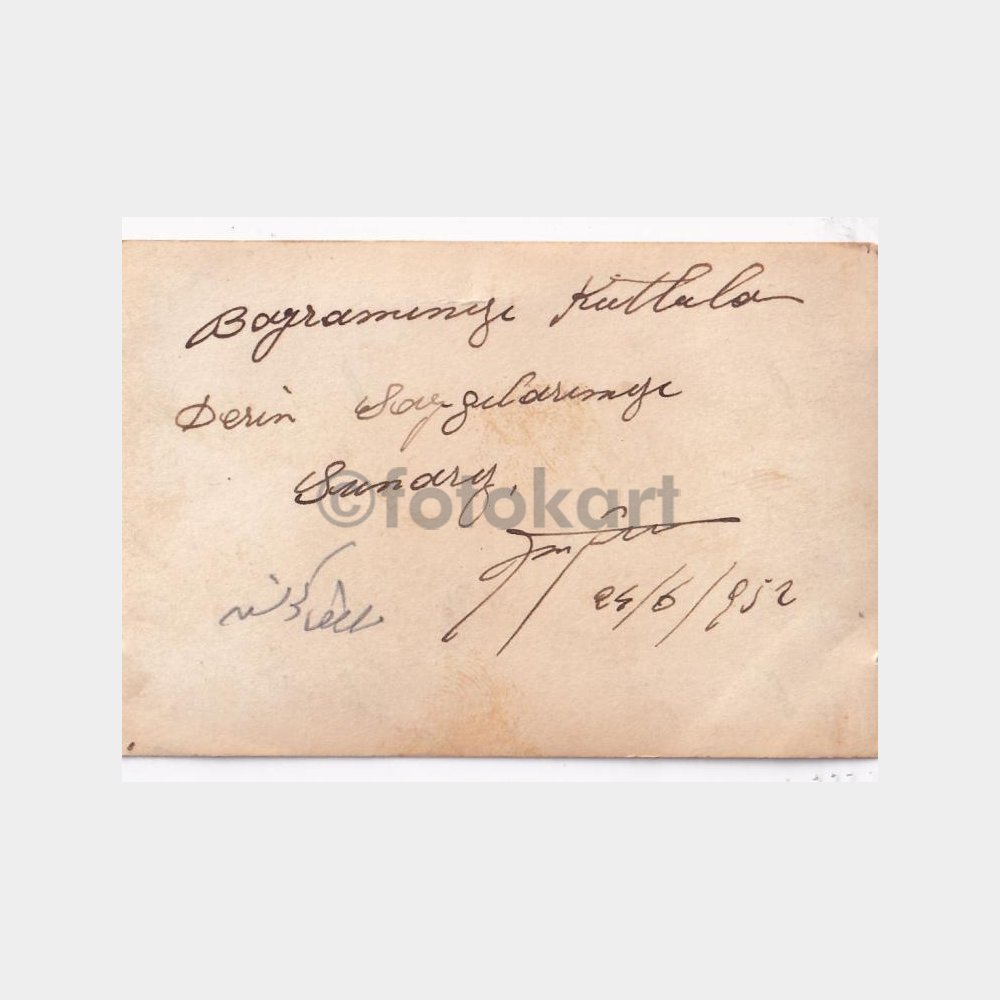 Bayramınızı Kutlula
Derin Saygılarımızı
Sunarız.
©fotokart
24/6/952